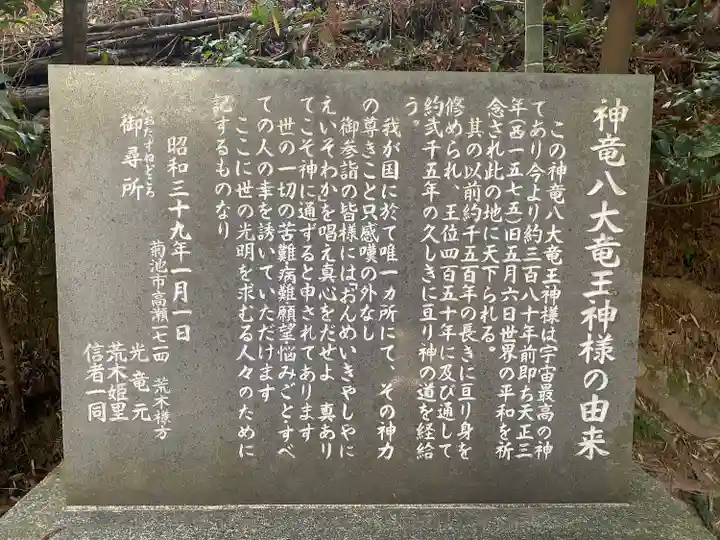 神竜八大竜王神様の由来
この神竜八大竜王神様は宇宙最高の神
てあり今より約三百八十年前即ち天正三
年(西一五七五)旧五月六日世界の平和を祈
念され此の地に天下られる。
其の以前約千五百年の長きに亘り身を
修められ、王位四百五十年に及び通して
約弐千五年の久しきに亘り神の道を経給
う。
我が国に於て唯一カ所にて、その神力
の尊きこと只感嘆の外なし
御参詣の皆様には「おんめいきやしやに
えいそわか」を唱え真心をだせよ 真あり
てこそ神に通ずると申されてあります
世の一切の苦難病難願望悩みごとすべ
ての人の幸を誘いていただけます
ここに世の光明を求むる人々のために
記するものなり
昭和三十九年一月一日
おたずねどころ
御尋所
菊池市高瀬一七四 荒木様方
光竜元
荒木姫里
信者一同